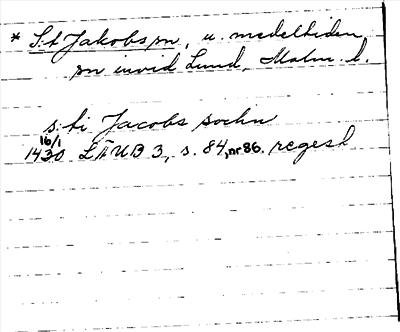 * S:t Jakobs sn, u. medeltiden
sn invid Lund, Malm. l.
s:ti Jacobs sochn
16/1
1430 LÄUB 3, s. 84, nr 86. regest